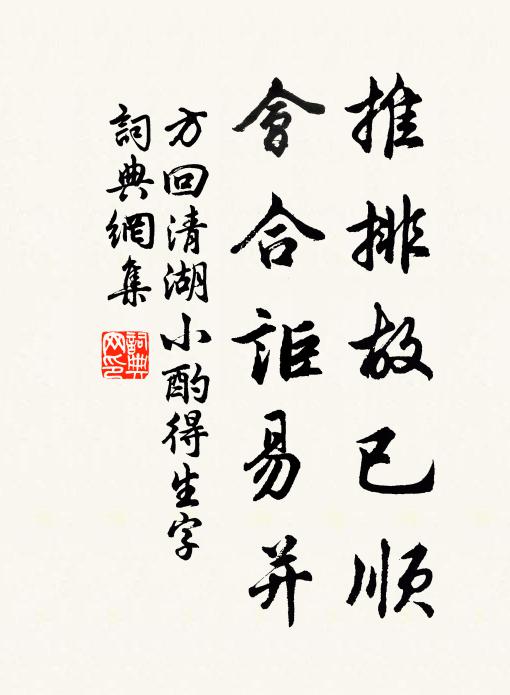 推排故已順
會合詎易并
方回清湖小酌得生字
詞典網集
詞典網印